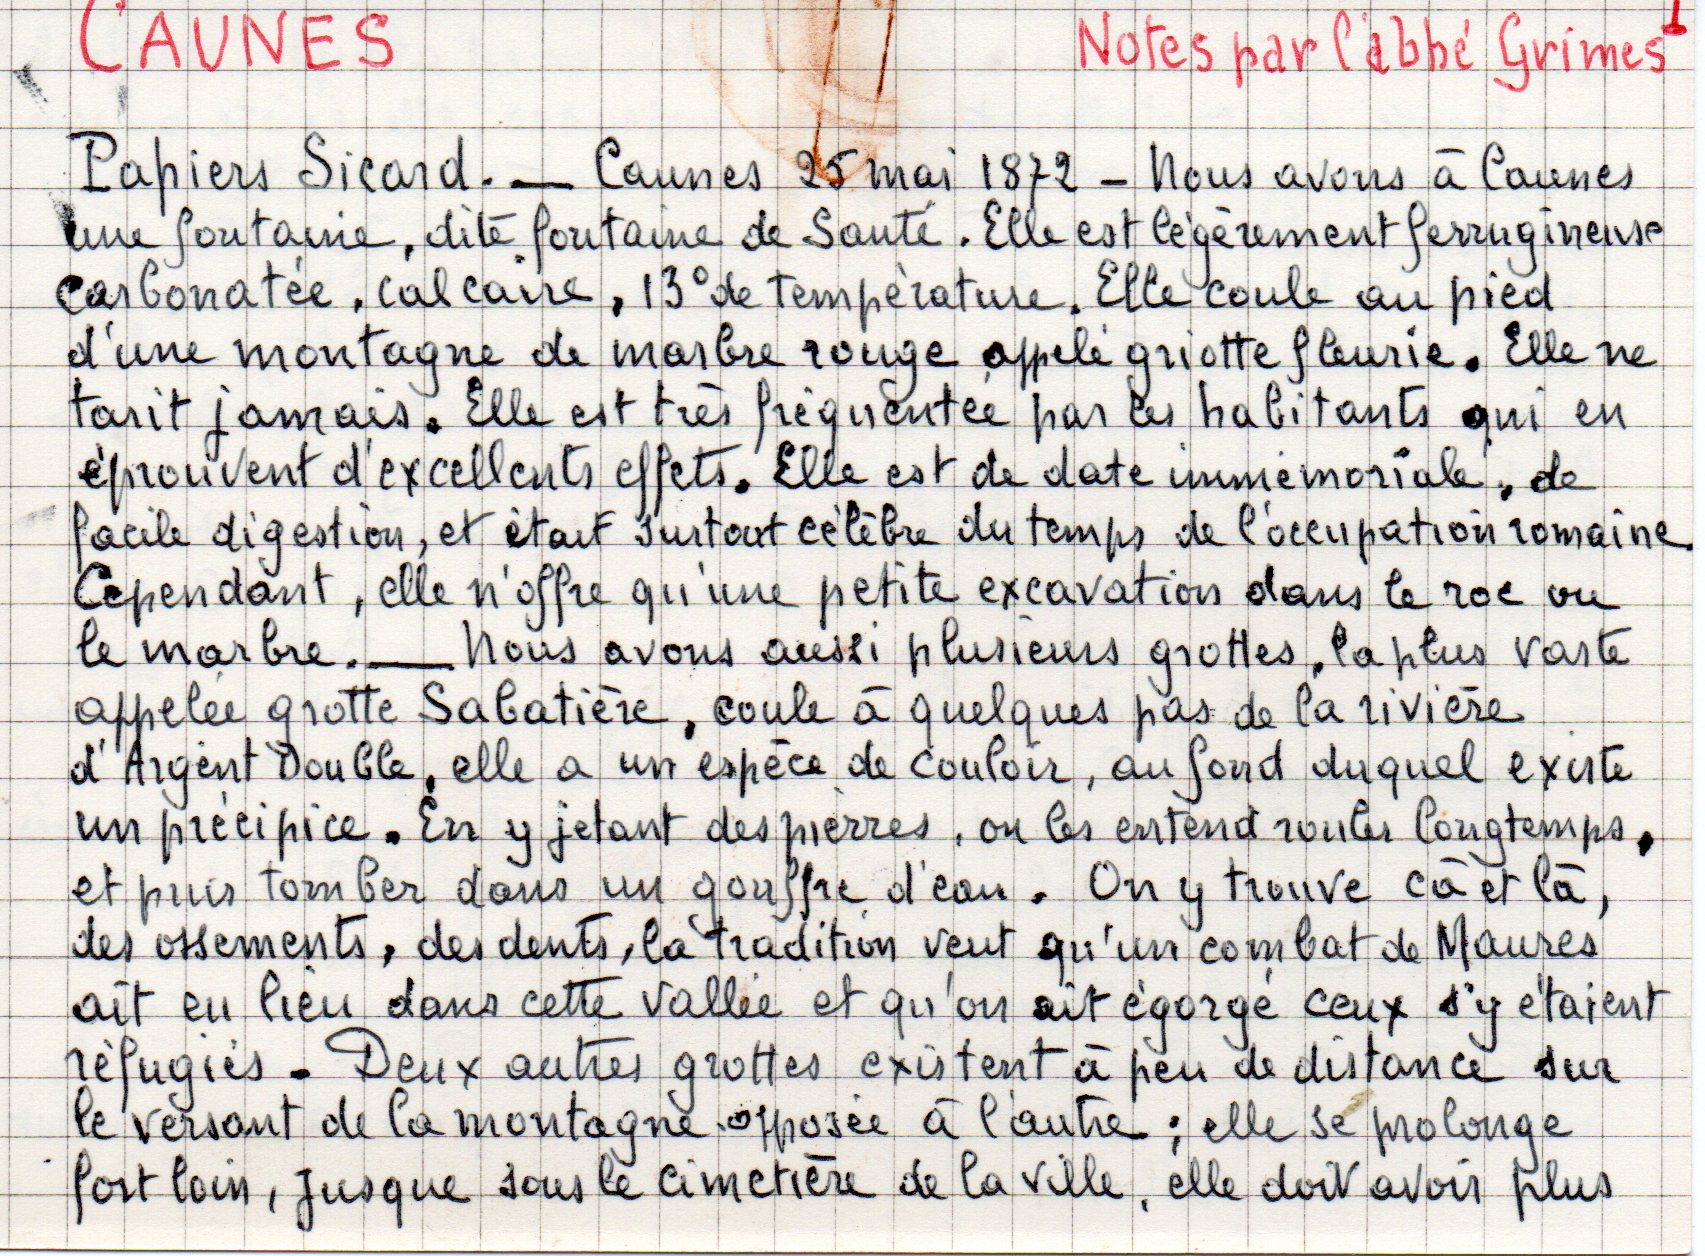 CAUNES
Notes par l'abbé Grimes 1
Papiers Sicard. — Caunes 25 mai 1872 - Nous avons à Caunes
une fontaine, dite fontaine de Santé. Elle est légèrement ferrugineuse
carbonatée, calcaire, 13° de température. Elle coule au pied
d'une montagne de marbre rouge appelé griotte fleurie. Elle ne
tarit jamais. Elle est très fréquentée par les habitants qui en
éprouvent d'excellents effets. Elle est de date immémoriale, de
facile digestion, et était surtout célèbre du temps de l'occupation romaine.
Cependant, elle n'offre qu'une petite excavation dans le roc ou
le marbre. — Nous avons aussi plusieurs grottes, la plus vaste
appelée grotte Sabatière, coule à quelques pas de la rivière
d'Argent Double, elle a un espèce de couloir, au fond duquel existe
un précipice. En y jetant des pierres, on les entend rouler longtemps,
et puis tomber dans un gouffre d'eau. On y trouve cà et là,
des ossements, des dents, la tradition veut qu'un combat de Maures
ait eu lieu dans cette vallée et qu'on ait égorgé ceux s'y étaient
réfugiés. Deux autres grottes existent à peu de distance sur
le versant de la montagne opposée à l'autre ; elle se prolonge
fort loin, jusque sous le cimetière de la ville, elle doit avoir plus